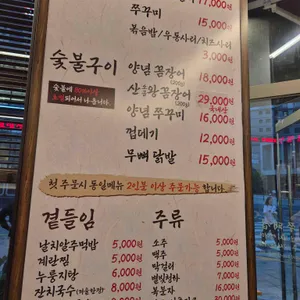 17,000원
쭈꾸미 15,000원
볶음밥/우동사리/치즈사리 3,000원
숯불구이
양념 꼼장어 (200g) 18,000원
산(소금)왕 꼼장어 (200g) 29,000원
양념 쭈꾸미 16,000원
껍데기 12,000원
무뼈 닭발 15,000원
숯불에
되어서 나옵니다
첫 주문시 동일메뉴 2인분 이상 주문가능 합니다
곁들임
날치알주먹밥 5,000원
계란찜 5,000원
누룽지탕 6,000원
잔치국수 8,000원
주류
소주 5,000원
맥주 5,000원
막걸리 5,000원
별빛청하
복분자